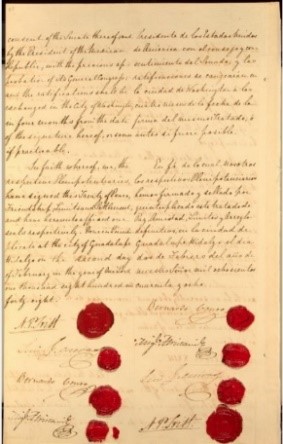 consent of the Senate thereof and
by the President of the Mexican
Republic, with the previous ap-
probation of its General Congress
and the ratifications shall be
exchanged in the City of Washington,
in four months from the date
of the signature hereof, or sooner
if practicable.
In faith whereof, we, the
respective Plenipotentiaries,
have signed this Treaty of Peace,
Friendship, Limits and Settlement,
and have hereunto affixed our
seals respectively. Done in Quintu-
plicate at the City of Guadalupe
Hidalgo on the second day
of February in the year of
one thousand eight hundred and
forty eight.
Presidente de los Estados Unidos
de America con el consejo y con-
sentimiento del Senado; y las
ratificaciones se cangearán en
la ciudad de Washington à los
cuatro meses de la fecha de la
firma del mismo Tratado, ó
antes si fuere posible.
En fe de lo cual, nosotros
los respectivos Plenipotenciarios
hemos firmado y sellado por
quintuplicado este tratado de
Paz, Amistad, Limites y Arreglo
definitivo en la ciudad de
Guadalupe Hidalgo el dia
dos de Febrero del año de
mil ochocientos
cuarenta y ocho.
N. P. Trist
Luis G. Cuevas
Bernardo Couto
Migl Atristain
Bernardo Couto
Migl Atristain
Luis G. Cuevas
N. P. Trist